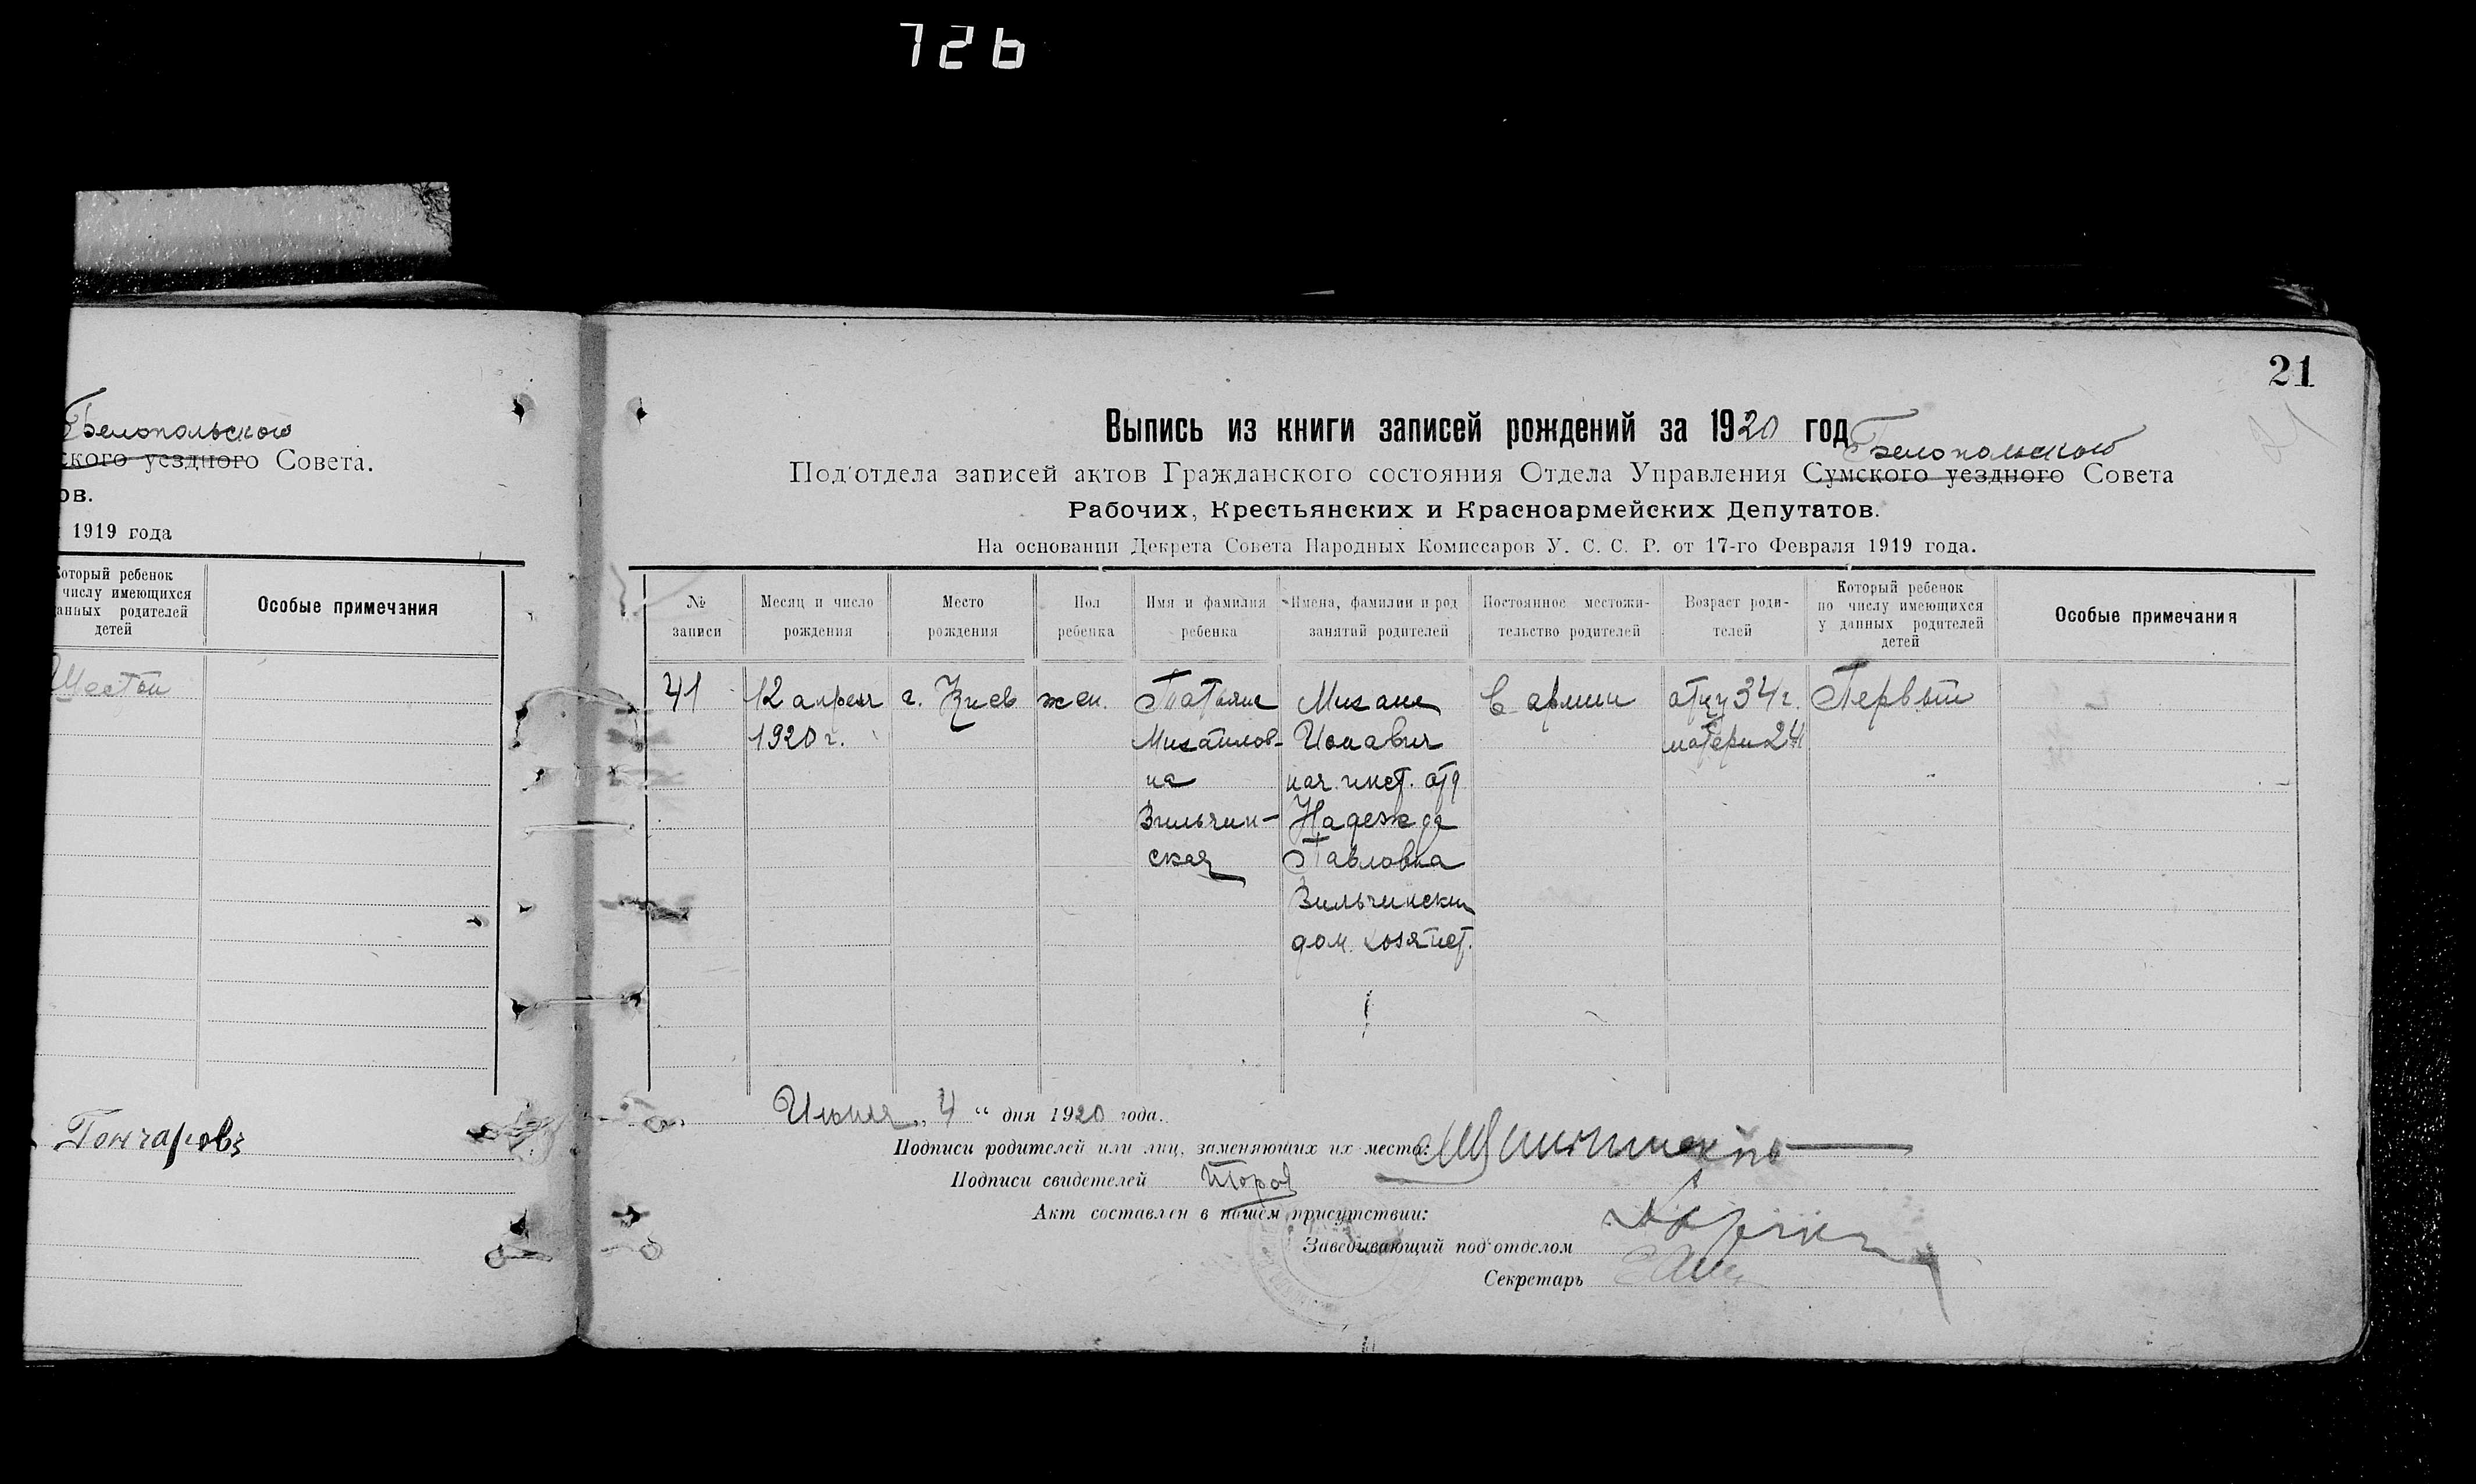 726
Белопольского
ского уездного Совета.
ов.
1919 года
Который ребенок
числу имеющихся
данных родителей
детей
Особые примечания
Шестой
Гончаровъ
21
Выпись из книги записей рождений за 1920 год
Белопольского
Под'отдела записей актов Гражданского состояния Отдела Управления Сумского уездного Совета
Рабочих, Крестьянских и Красноармейских Депутатов.
На основании Декрета Совета Народных Комиссаров У. С. С. Р. от 17-го Февраля 1919 года.
№ записи
Месяц и число рождения
Место рождения
Пол ребенка
Имя и фамилия ребенка
Имена, фамилии и род занятай родителей
Постоянное местожи-
тельство родителей
Возраст роди-
телей
Который ребенок
по числу имеющихся
у данных родителей
детей
Особые примечания
41
12 апреля
1920 г.
г. Киев
жен.
Татьяна
Михайлов-
на
Вильчин-
ская
Михаил
нач. инст. отд
Надежда
Павловна
Вильчински
дом. хозяйст.
В армии
отцу 34 г.
матери 24
Первый
Июня „ 4 “ дня 1920 года.
Подписи родителей или лиц, заменяющих их места:
Подписи свидетелей
Акт составлен в нашем присутствии:
Заведывающий под'отделом
Секретарь